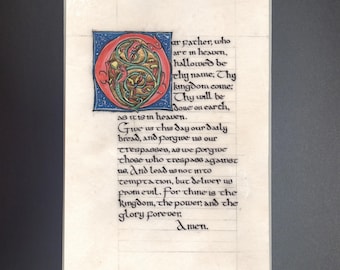 Our Father, who
art in heaven,
hallowed be
thy name; Thy
kingdom come;
Thy will be
done on earth,
as it is in heaven.
Give us this day our daily
bread, and forgive us our
trespasses, as we forgive
those who trespass against
us. And lead us not into
temptation, but deliver us
from evil. For thine is the
kingdom, the power, and the
glory forever.
Amen.